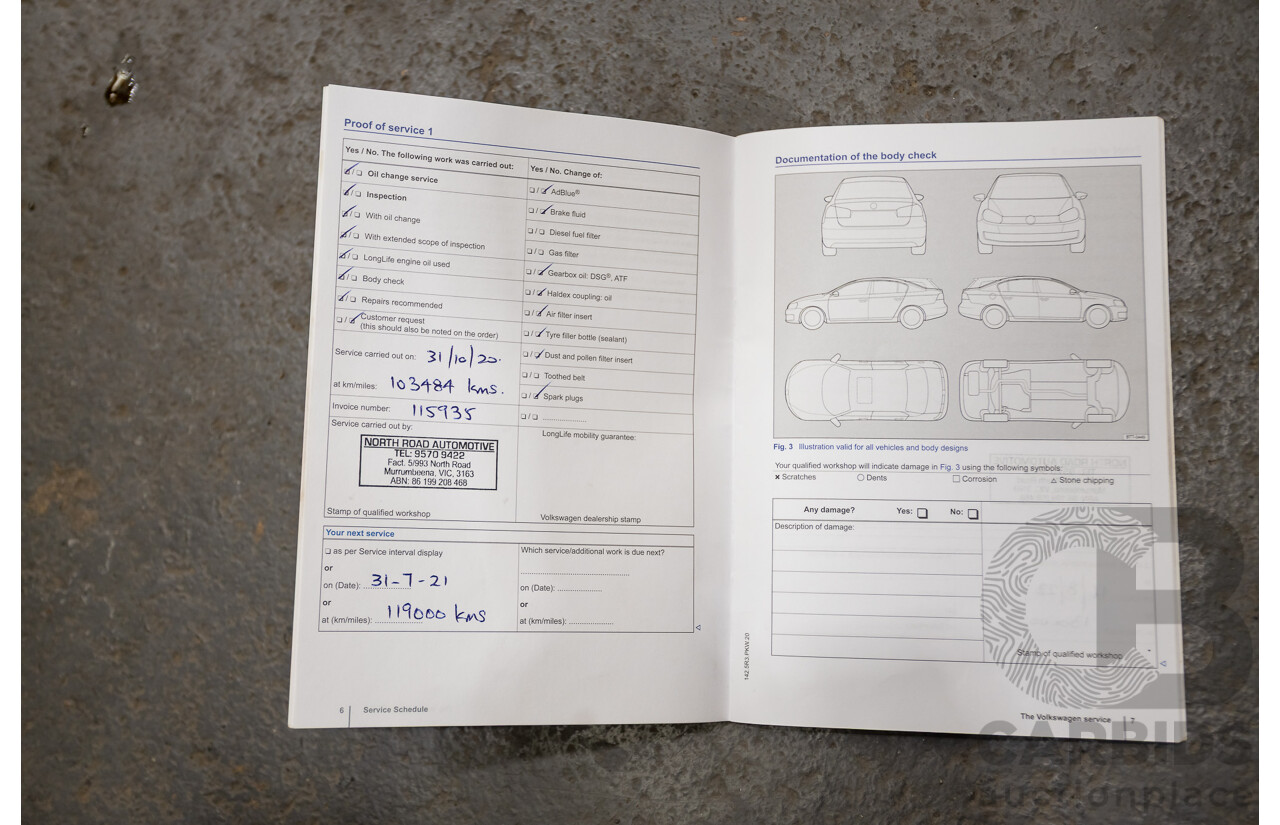 Proof of service 1
Yes / No. The following work was carried out:
☑/☐ Oil change service
☑/☐ Inspection
☑/☐ With oil change
☑/☐ With extended scope of inspection
☑/☐ LongLife engine oil used
☑/☐ Body check
☑/☐ Repairs recommended
☐/☑ Customer request
(this should also be noted on the order)
Service carried out on: 31/10/20.
at km/miles: 103484 kms.
Invoice number: 115935
Service carried out by:
NORTH ROAD AUTOMOTIVE
TEL: 9570 9422
Fact. 5/993 North Road
Murrumbeena, VIC, 3163
ABN: 86 199 208 468
Stamp of qualified workshop
Yes / No. Change of:
☐/☑ AdBlue®
☐/☑ Brake fluid
☐/☐ Diesel fuel filter
☐/☐ Gas filter
☐/☑ Gearbox oil: DSG®, ATF
☐/☑ Haldex coupling: oil
☐/☑ Air filter insert
☐/☑ Tyre filler bottle (sealant)
☐/☑ Dust and pollen filter insert
☐/☐ Toothed belt
☐/☑ Spark plugs
☐/☐ ................
LongLife mobility guarantee:
Volkswagen dealership stamp
Your next service
☐ as per Service interval display
or
on (Date): 31-7-21
or
at (km/miles): 119000 kms
Which service/additional work is due next?
on (Date): ................
or
at (km/miles): ................
6 Service Schedule
Documentation of the body check
Fig. 3 Illustration valid for all vehicles and body designs
Your qualified workshop will indicate damage in Fig. 3 using the following symbols:
× Scratches ○ Dents ☐ Corrosion △ Stone chipping
Any damage? Yes: ☐ No: ☐
Description of damage:
Stamp of qualified workshop
142.5R3.PKW.20
The Volkswagen service 7
CARBIDS
auctionplace